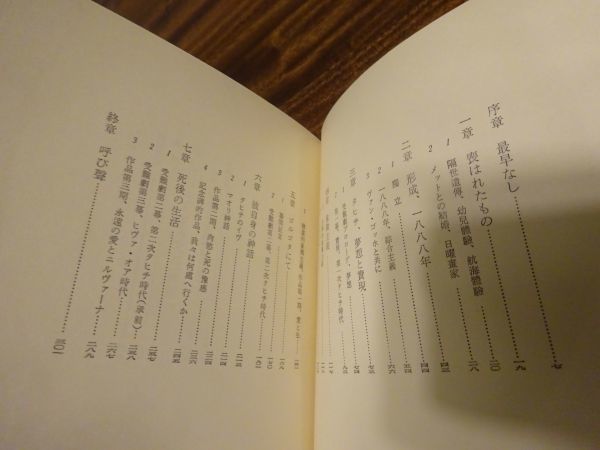 序章 最早なし……七
一章 喪はれたもの……一九
1 隔世遺傳、幼兒體驗、航海體驗……二〇
2 メットとの結婚、日曜畫家……二八
二章 形成、一八八八年……四三
1 獨立……四四
2 一八八八年、綜合主義……六六
3 ヴァン・ゴッホと共に……七五
三章 タヒチ、夢想と實現……
1 受難劇プロローグ、夢想
五章 ゴルゴタにて
2 受難劇第二幕、第二次タヒチ時代
六章 彼自身の神話
1 タヒチのイヴ
2 マオリ神話
3 作品第二期、肉慾と死の豫感
4 記念碑的作品、我々は何處へ行くか
七章 死後の生活……二四五
1 受難劇第二幕、第二次タヒチ時代(承前)
2 受難劇第三幕、ヒヴァ・オア時代
3 作品第三期、永遠の愛とニルヴァーナ……二八九
終章 呼び聲……三〇一